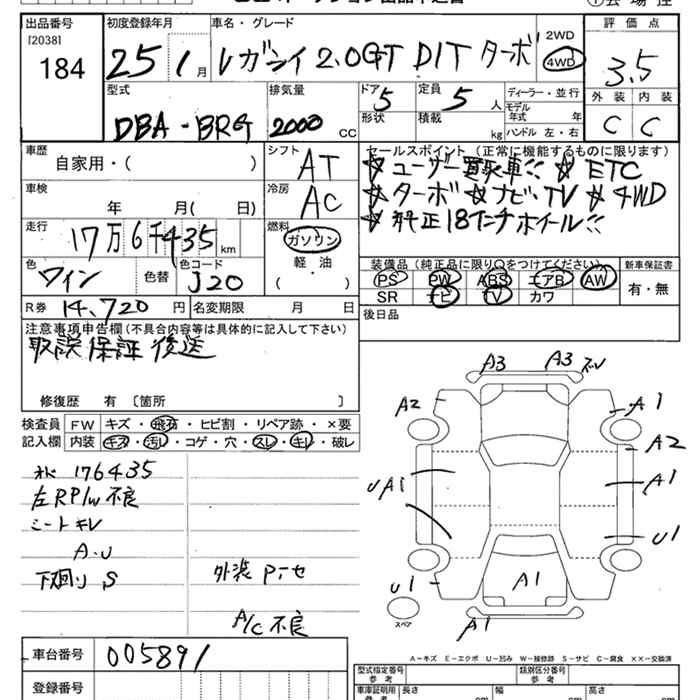 出品番号 初度登録年月 車名・グレード 2WD 評価点
[2038]
184 25 1月 レガシィ 2.0GT DIT ターボ 4WD 3.5
型式 排気量 ドア 定員 ディーラー・並行 外装 内装
DBA-BRG 2000 CC 5 5 人 モデル年式 年 C C
形状 積載 kg ハンドル 左・右
車歴 シフト セールスポイント (正常に機能するものに限ります)
自家用・( ) AT ☆ユーザー買取車!! ☆ETC
車検 冷房 ☆ターボ☆ナビ・TV ☆4WD
年 月( 日) AC ☆純正18インチホイール!!
走行 燃料
17万6千435km ガソリン
軽・油
( )
色 色替 色コード 装備品 (純正品に限り○をつけてください) 新車保証書
ワイン J20 PS PW ABS エアB AW 有・無
SR ナビ TV カワ
R券 14,720 円 名変期限 月 日 後日品
注意事項申告欄(不具合内容等は具体的に記入して下さい)
取説保証後送
修復歴 有 〔箇所 〕
検査員 FW キズ・飛石・ヒビ割・リペア跡・×要
記入欄 内装 キズ・汚れ・コゲ・穴・スレ・キレ・破レ
176435
左RP/W不良
シートキレ
A.U
下廻りS 外装
A/C不良
A3 A3
A2 A1
A2
UA1 A1
U1
U1 A1
スペア
A1
A-キズ E-エクボ U-凹み W-補修跡 S-サビ C-腐食 ××-交換済
車台番号 005891
登録番号
型式指定番号 参考 類別区分番号 参考
車庫証明用 参考 長さ cm 幅 cm 高さ cm